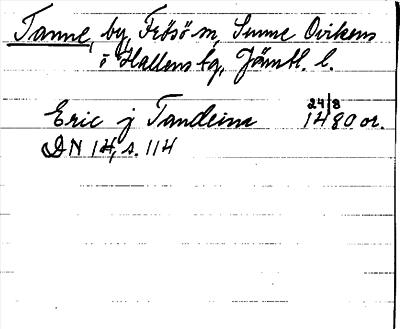 Tanne, by, Frösö sn, Sunne Ovikens
o Hallens tg, Jämtl. l.
24/8
Eric j Tandeim 1480 or.
DN 14, s. 114